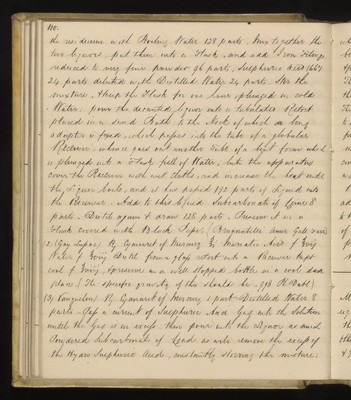 110.
the residuum with Boiling Water 128 parts. Pour together the
two liquors, put them into a Flask, and add Iron filings
reduced to very fine powder 96 parts, Sulphuric Acid (66°)
24 parts diluted with Distilled Water 24 parts. Stir the
mixture, & keep the Flask for one hour plunged in cold
Water, pour the decanted liquor into a tubulated Retort
placed in a sand Bath, to the Neck of which a long
adopter is fixed, which passes into the tube of a globular
Receiver, whence goes out another tube of a bent form which
is plunged into a Flask full of Water, lute the apparatus
cover the Receiver with wet cloths, and increase the heat until
the liquor boils, and it has passed 192 parts of liquid into
the Receiver. Add to this liquid Subcarbonate of Lime 8
parts. Distil again & draw 128 parts. Preserve it in a
Flask covered with Black Paper.
(2) (Gay Lussac) By Cyanuret of Mercury & Muriatic Acid
Distil from a glass retort into a Receiver kept
cool by & preserve in a well stopped bottle in a cool dark
place. (The specific gravity of this should be
(3) (Vauquelin) By Cyanuret of Mercury 1 part Distilled Water 8
parts. Pass a current of Sulphuric Acid Gas into the Solution
until the Gas is in excess. then pour into the Liquor as much
Powdered Subcarbonate of Lead as will remove the excess of
the Hydro Sulphuric Acid, constantly stirring the mixture;